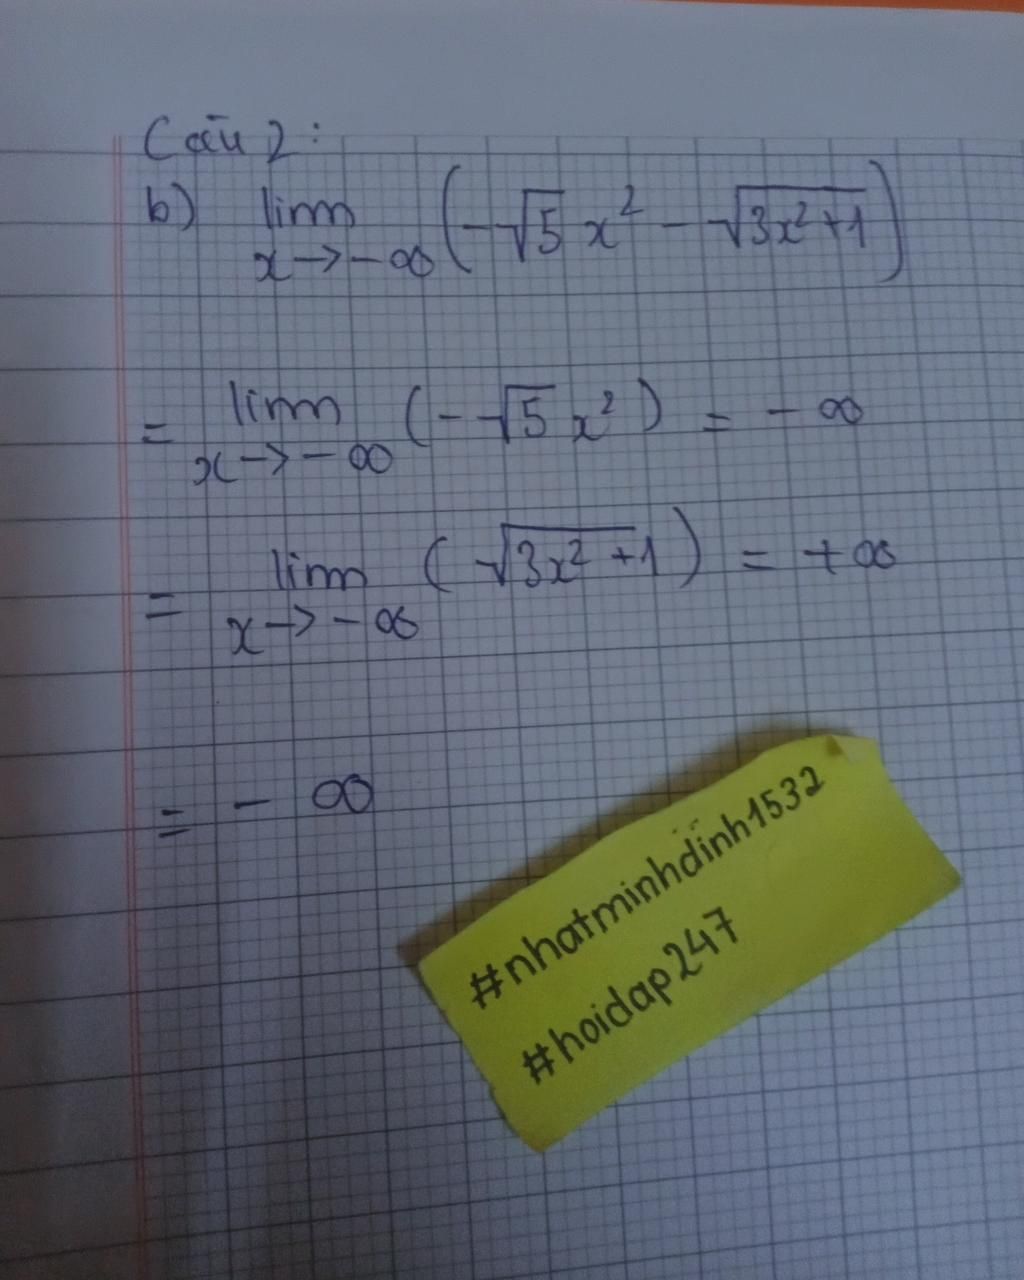 Câu 2:
b) lim x→-∞ (-√5 x² - √(3x²+1))
= lim x→-∞ (-√5 x²) = -∞
= lim x→-∞ (√(3x²+1)) = +∞
= -∞
#nhatminhdinh1532
#hoidap247